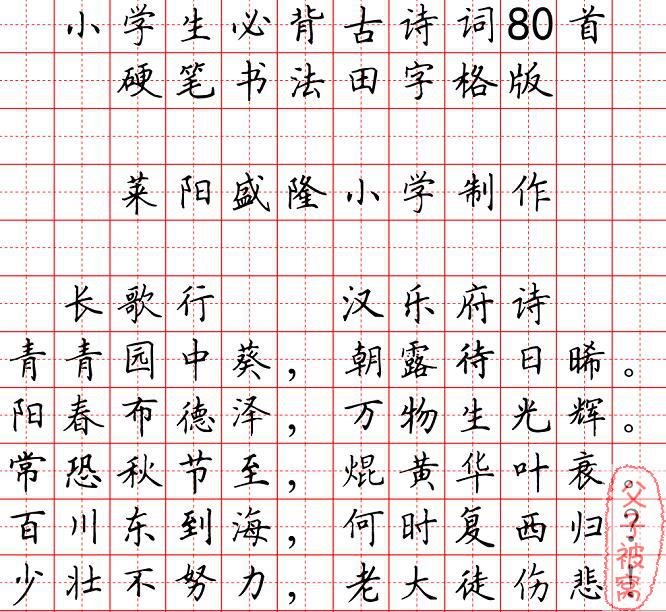 小学生必背古诗词80首
硬笔书法田字格版
莱阳盛隆小学制作
长歌行 汉乐府诗
青青园中葵，朝露待日晞。
阳春布德泽，万物生光辉。
常恐秋节至，焜黄华叶衰。
百川东到海，何时复西归？
少壮不努力，老大徒伤悲！
父子被窝